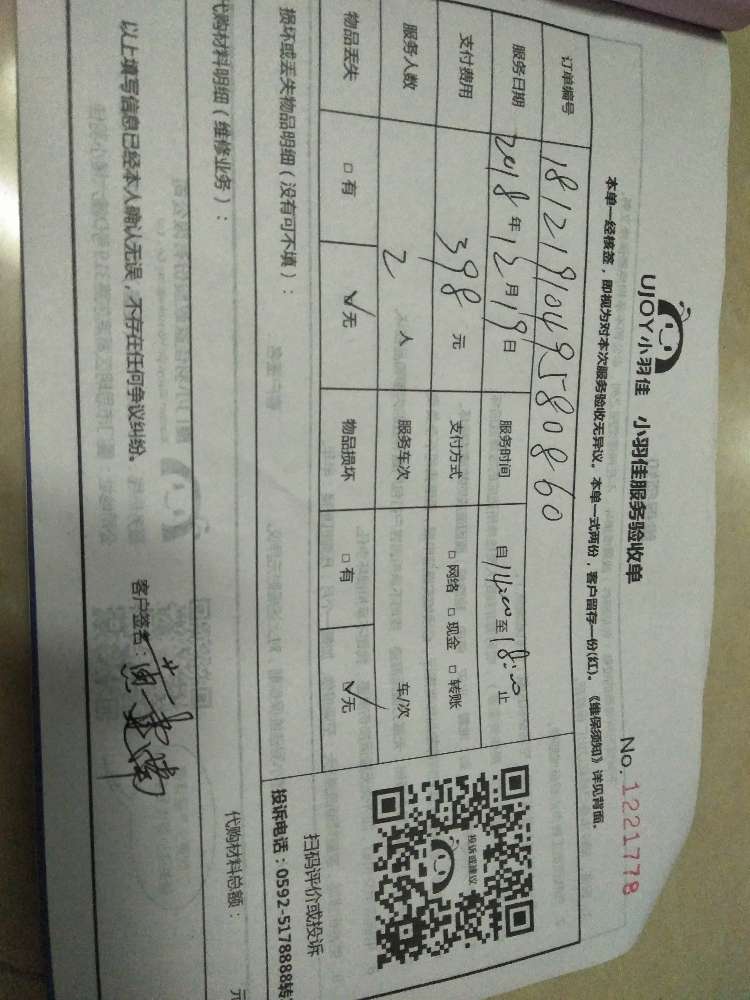 UJOY小羽佳 小羽佳服务验收单
No. 1221778
本单一经核签，即视为对本次服务验收无异议。本单一式两份，客户留存一份(红)。《维保须知》详见背面。
订单编号 1812191049580860
服务日期 2018年12月19日 服务时间 自14:00至18:00止
支付费用 398元 支付方式 □网络 □现金 □转账
服务人数 2人 服务车次 车/次
物品丢失 □有 ☑无 物品损坏 □有 ☑无
投诉或建议
扫码评价或投诉
投诉电话：0592-5178888转
损坏或丢失物品明细（没有可不填）：
代购材料明细（维修业务）： 代购材料总额： 元
以上填写信息已经本人确认无误，不存在任何争议纠纷。 客户签名：